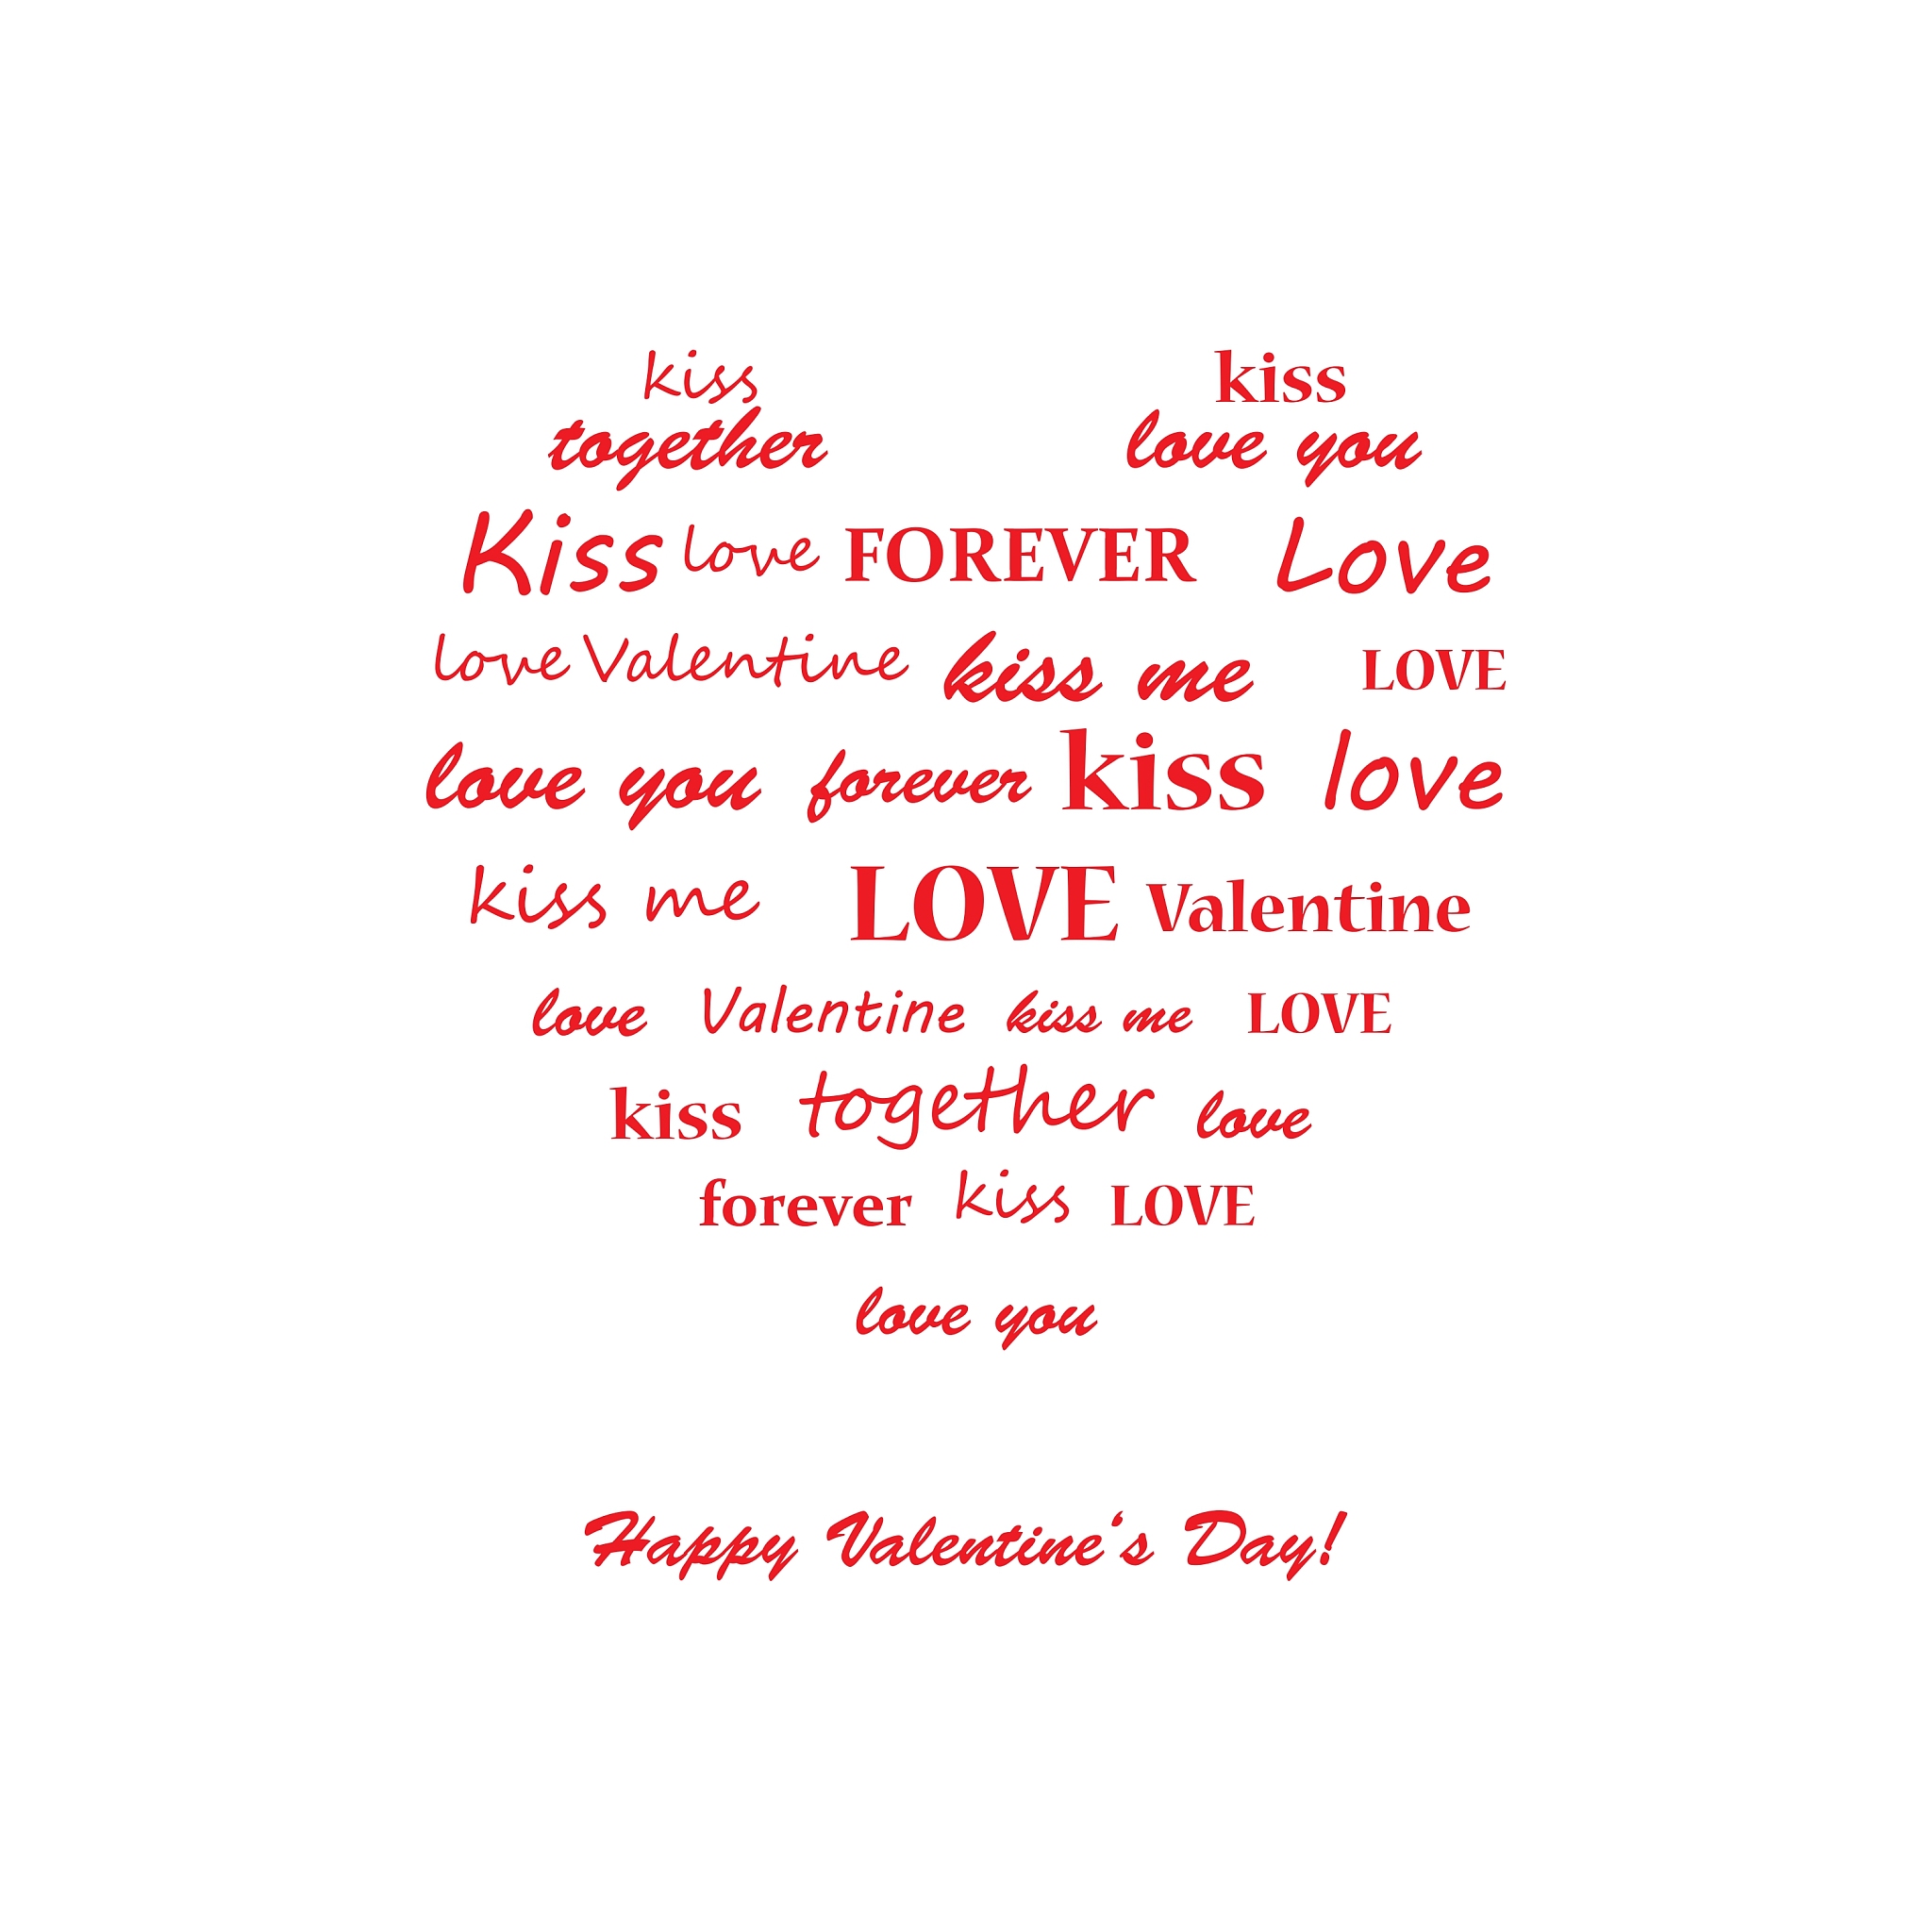 kiss kiss
together love you
Kiss love FOREVER Love
love Valentine kiss me LOVE
love you forever kiss love
kiss me LOVE Valentine
love Valentine kiss me LOVE
kiss together love
forever kiss LOVE
love you
Happy Valentine's Day!